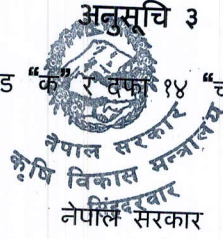 अनुसूचि ३
ड "क" र दफा १४ "च
नेपाल सरकार
कृषि विकास मन्त्रालय
सिंहदरवार
नेपाल सरकार